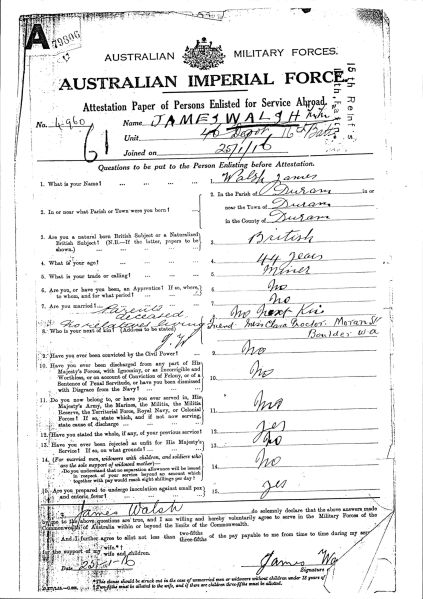 A 79806
AUSTRALIAN MILITARY FORCES.
AUSTRALIAN IMPERIAL FORCE.
Attestation Paper of Persons Enlisted for Service Abroad.
15th Reinf's
16th Battn
No. 4960 Name JAMES WALSH
61 Unit 40 Depot 16th Battn
Joined on 25/1/16
Questions to be put to the Person Enlisting before Attestation.
1. What is your Name? 1. Walsh James
2. In or near what Parish or Town were you born? 2. In the Parish of Duram in or
near the Town of Duram
in the County of Duram
3. Are you a natural born British Subject or a Naturalized
British Subject? (N.B.—If the latter, papers to be
shown.) 3. British
4. What is your age? 4. 44 years
5. What is your trade or calling? 5. Miner
6. Are you, or have you been, an Apprentice? If so, where,
to whom, and for what period? 6. No
7. Are you married? 7. No
Parents
deceased
No relatives living
8. Who is your next of kin? (Address to be stated) 8. No Next Kin
friend Miss Clara Proctor Moran St
Boulder W.A
J.W
9. Have you ever been convicted by the Civil Power? 9. No
10. Have you ever been discharged from any part of His
Majesty's Forces, with Ignominy, or as Incorrigible and
Worthless, or on account of Conviction of Felony, or of a
Sentence of Penal Servitude, or have you been dismissed
with Disgrace from the Navy? 10. No
11. Do you now belong to, or have you ever served in, His
Majesty's Army, the Marines, the Militia, the Militia
Reserve, the Territorial Force, Royal Navy, or Colonial
Forces? If so, state which, and if not now serving,
state cause of discharge 11. No
12. Have you stated the whole, if any, of your previous service? 12. Yes
13. Have you ever been rejected as unfit for His Majesty's
Service? If so, on what grounds? 13. No
14. (For married men, widowers with children, and soldiers who
are the sole support of widowed mother)—
Do you understand that no separation allowance will be issued
in respect of your service beyond an amount which
together with pay would reach eight shillings per day? 14. No
15. Are you prepared to undergo inoculation against small pox
and enteric fever? 15. Yes
I, James Walsh do solemnly declare that the above answers made
by me to the above questions are true, and I am willing and hereby voluntarily agree to serve in the Military Forces of the
Commonwealth of Australia within or beyond the limits of the Commonwealth.
And I further agree to allot not less than two-fifths three-fifths of the pay payable to me from time to time during my service
for the support of my wife* wife and children.†
Date 25-1-16
James Wa
Signature
*This clause should be struck out in the case of unmarried men or widowers without children under 18 years of